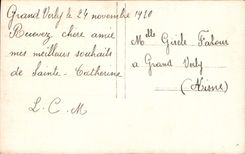 Grand Verly le 24 novembre 1920
Recevez, chère amie
mes meilleurs souhaits
de Sainte-Catherine
L. C. M
Mlle Gisèle
a Grand Verly
(Aisne)